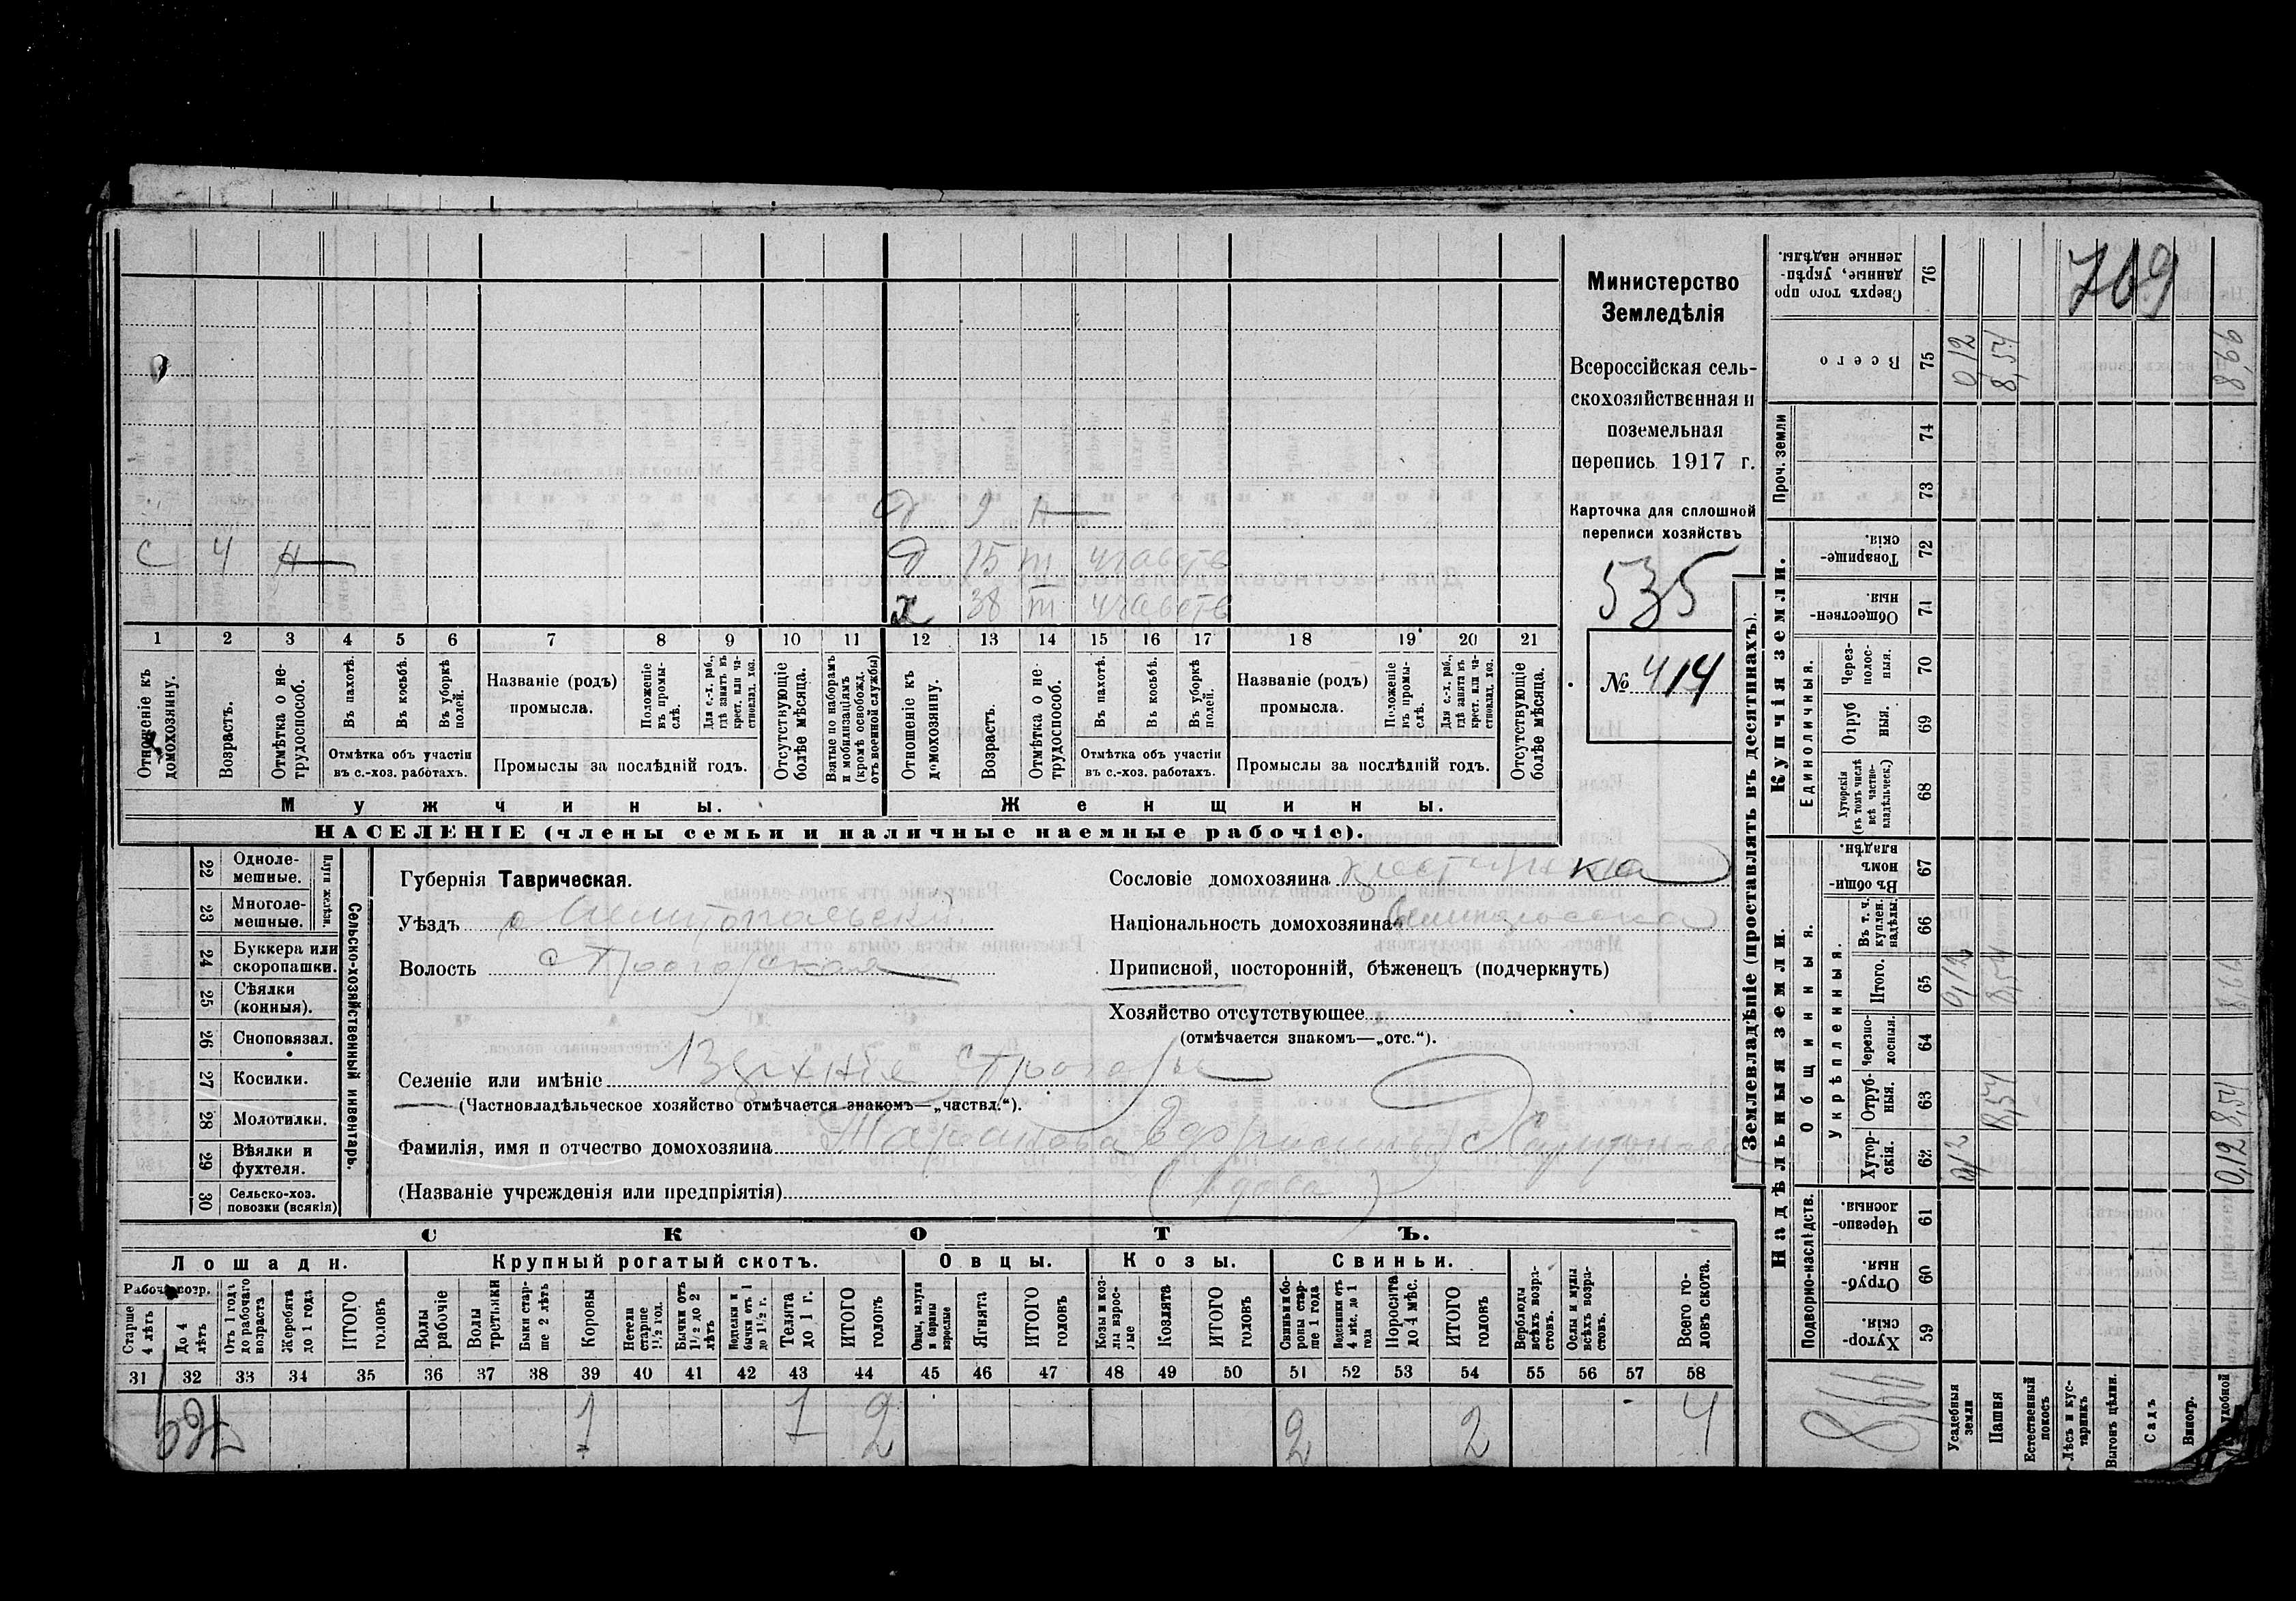 Министерство
Земледѣлія
Всероссійская сель-
скохозяйственная и
поземельная
перепись 1917 г.
Карточка для сплошной
переписи хозяйствъ
535
№ 414
769
д 9 н
с 4 н
д 15 т участв
х 38 т участв
1 2 3 4 5 6 7 8 9 10 11 12 13 14 15 16 17 18 19 20 21
Отношеніе къ домохозяину.
Возрастъ.
Отмѣтка о не-трудоспособ.
Въ пахотѣ.
Въ косьбѣ.
Въ уборкѣ полей.
Отмѣтка объ участіи въ с.-хоз. работахъ.
Названіе (родъ) промысла.
Положеніе въ промы-слѣ.
Для с.-х. раб., гдѣ занятъ въ крест. или ча-ствовлад. хоз.
Промыслы за послѣдній годъ.
Отсутствующіе болѣе мѣсяца.
Взятые по наборамъ и мобилизаціямъ (кромѣ освобожд. отъ военной службы)
Отношеніе къ домохозяину.
Возрастъ.
Отмѣтка о не трудоспособ.
Въ пахотѣ.
Въ косьбѣ.
Въ уборкѣ полей.
Отмѣтка объ участіи въ с.-хоз. работахъ.
Названіе (родъ) промысла.
Положеніе въ промы-слѣ.
Для с.-х. раб., гдѣ занята въ крест. или ча-ствовлад. хоз.
Промыслы за послѣдній годъ.
Отсутствующіе болѣе мѣсяца.
Мужчины. Женщины.
НАСЕЛЕНІЕ (члены семьи и наличные наемные рабочіе).
Сельско-хозяйственный инвентарь.
22 Одноле-мешные.
23 Многоле-мешные.
24 Буккера или скоропашки.
25 Сѣялки (конныя).
26 Сноповязал.
27 Косилки.
28 Молотилки.
29 Вѣялки и фухтеля.
30 Сельско-хоз. повозки (всякія)
Губернія Таврическая.
Уѣздъ Мелитопальский
Волость Строгоская
Селеніе или имѣніе Верхніе Строгоры
(Частновладѣльческое хозяйство отмѣчается знакомъ—„частвл.“).
Фамилія, имя и отчество домохозяина
(Названіе учрежденія или предпріятія) (вдова)
Сословіе домохозяина крестянка
Національность домохозяина
Приписной, посторонній, бѣженецъ (подчеркнуть)
Хозяйство отсутствующее
(отмѣчается знакомъ—„отс.“).
СКОТЪ.
Лошади. Крупный рогатый скотъ. Овцы. Козы. Свиньи.
Старше 4 лѣтъ
До 4 лѣтъ
Отъ 1 года до рабочаго возраста
Жеребята до 1 года
ИТОГО головъ
Волы рабочіе
Волы третьяки
Быки стар-ше 2 лѣтъ
Коровы
Нетели старше 1½ год.
Бычки отъ 1½ до 2 лѣтъ
Телята до 1 г.
ИТОГО головъ
Ягнята
ИТОГО головъ
Козы и коз-лы взрос-лые
Козлята
ИТОГО головъ
Свиньи и бо-ровы стар-ше 1 года
Поросята до 4 мѣс.
ИТОГО головъ
Верблюды всѣхъ возра-стовъ.
Ослы и мулы всѣхъ возра-стовъ.
Всего го-ловъ скота.
31 32 33 34 35 36 37 38 39 40 41 42 43 44 45 46 47 48 49 50 51 52 53 54 55 56 57 58
1 1 2 2 2 4
Землевладѣніе (проставлять въ десятинахъ).
Надѣльныя земли. Купчія земли.
Подворно-наслѣдств.
Общинныя.
Укрѣпленныя.
Единоличныя.
Проч. земли
59 Хутор-скія.
60 Отруб-ныя.
61 Черезпо-лосныя.
62 Хутор-скія. 0,12
63 Отруб-ныя. 8,54
64 Черезпо-лосныя.
65 Итого. 0,12 8,54
66 Въ т. ч. куплен. надѣлы.
67 Въ общи-номъ владѣн.
68 Хуторскія (въ томъ числѣ всѣ частно-владѣльческ.)
69 Отруб ныя.
70 Через-полос-ныя.
71 Обществен-ныя.
72 Товарище-скія.
73
74
75 Всего 0,12 8,54 8,66
76 Сверхъ того про данные, укрѣп-ленные надѣлы.
8,66
Усадебныя земли
Пашня
Естественный покосъ
Лѣсъ и кус-тарникъ
Выгонъ цѣлин.
Садъ
Виногр.